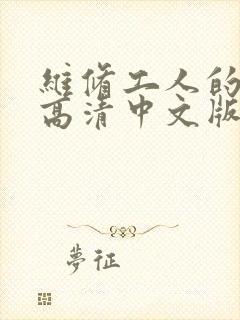 維脩工人的
高清中文版
夢征